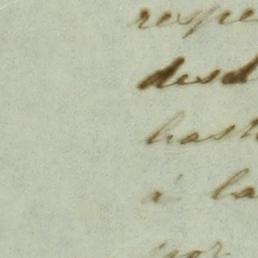 respe
desd
hast
á la
por